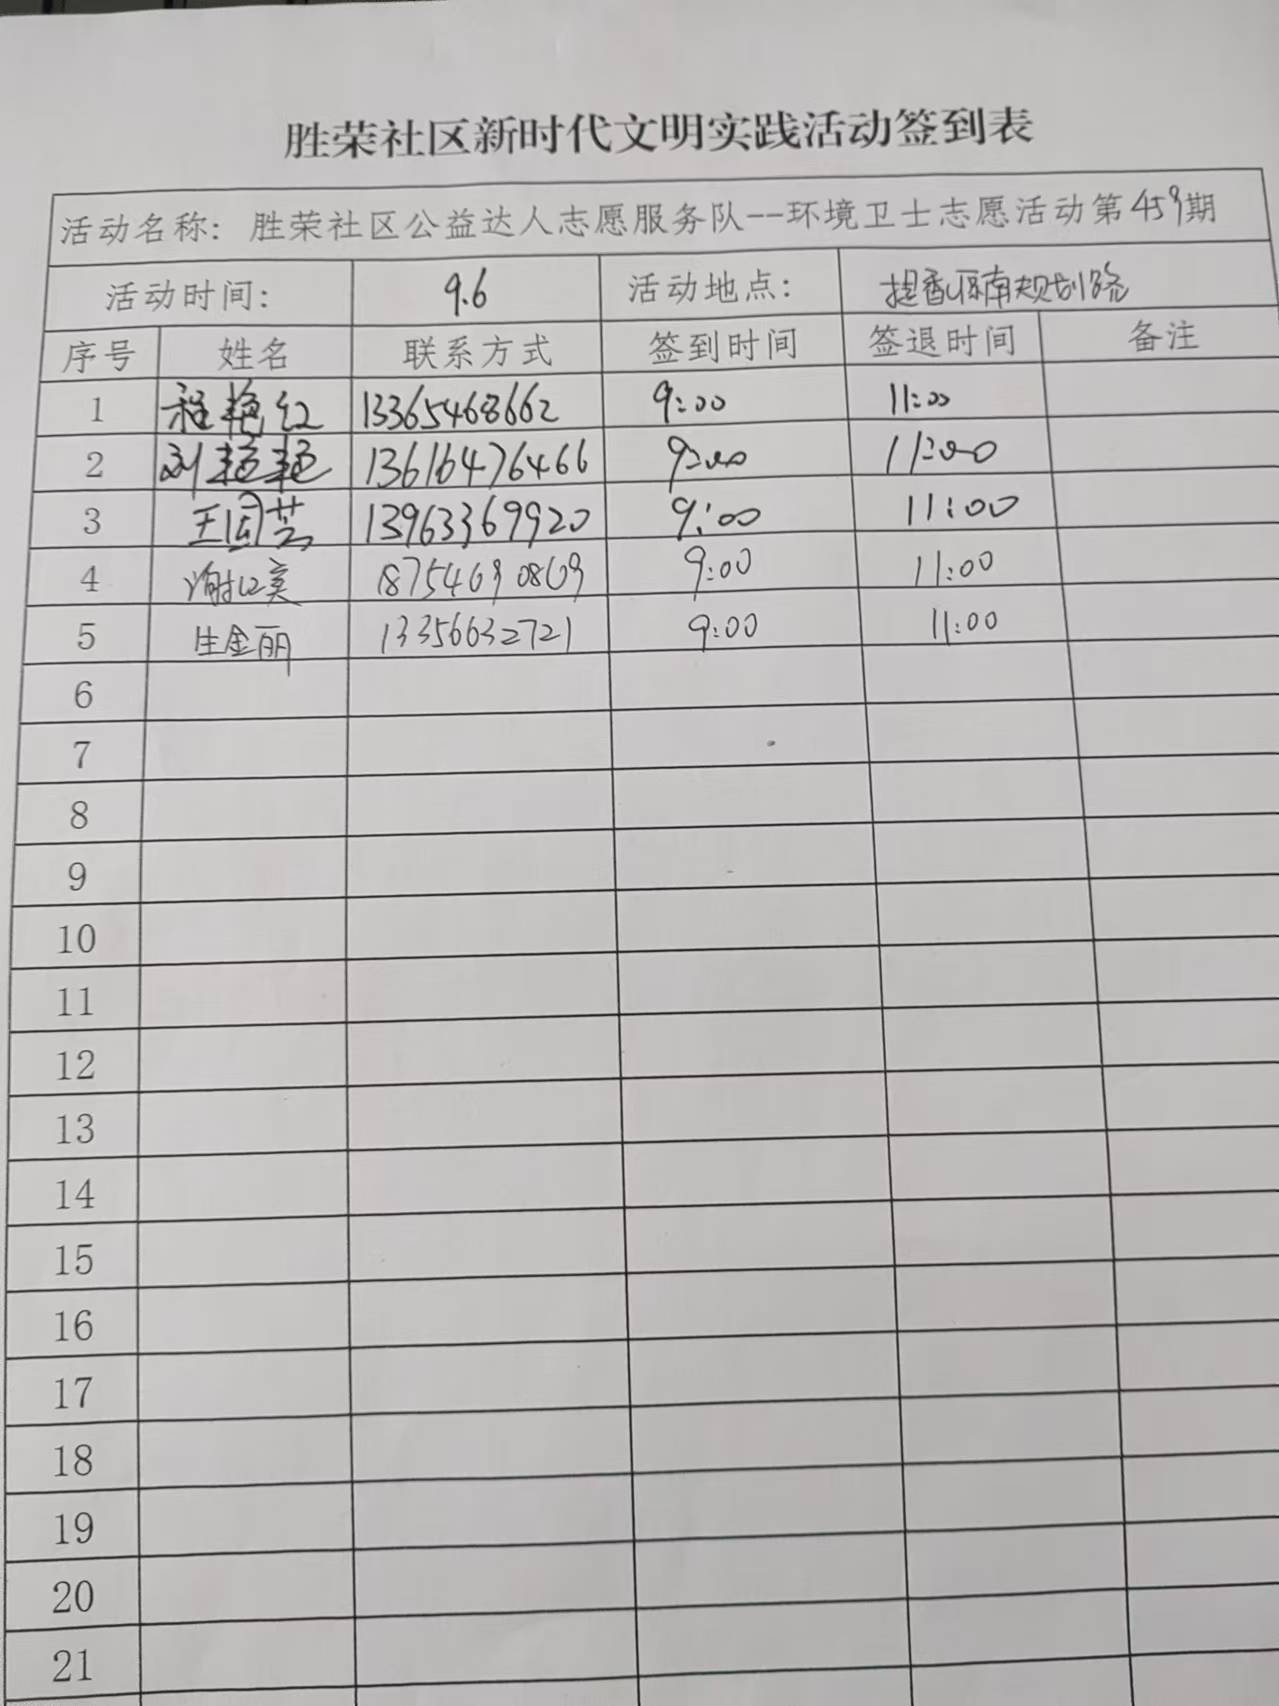 胜荣社区新时代文明实践活动签到表
活动名称：胜荣社区公益达人志愿服务队--环境卫士志愿活动第459期
活动时间： 9.6 活动地点： 提香溪岸南规划路
序号 姓名 联系方式 签到时间 签退时间 备注
1 程艳红 13365468662 9:00 11:00
2 刘艳艳 13616476466 9:00 11:00
3 王同芸 13963369920 9:00 11:00
4 谢红英 18754690869 9:00 11:00
5 生金丽 13356632721 9:00 11:00
6
7
8
9
10
11
12
13
14
15
16
17
18
19
20
21